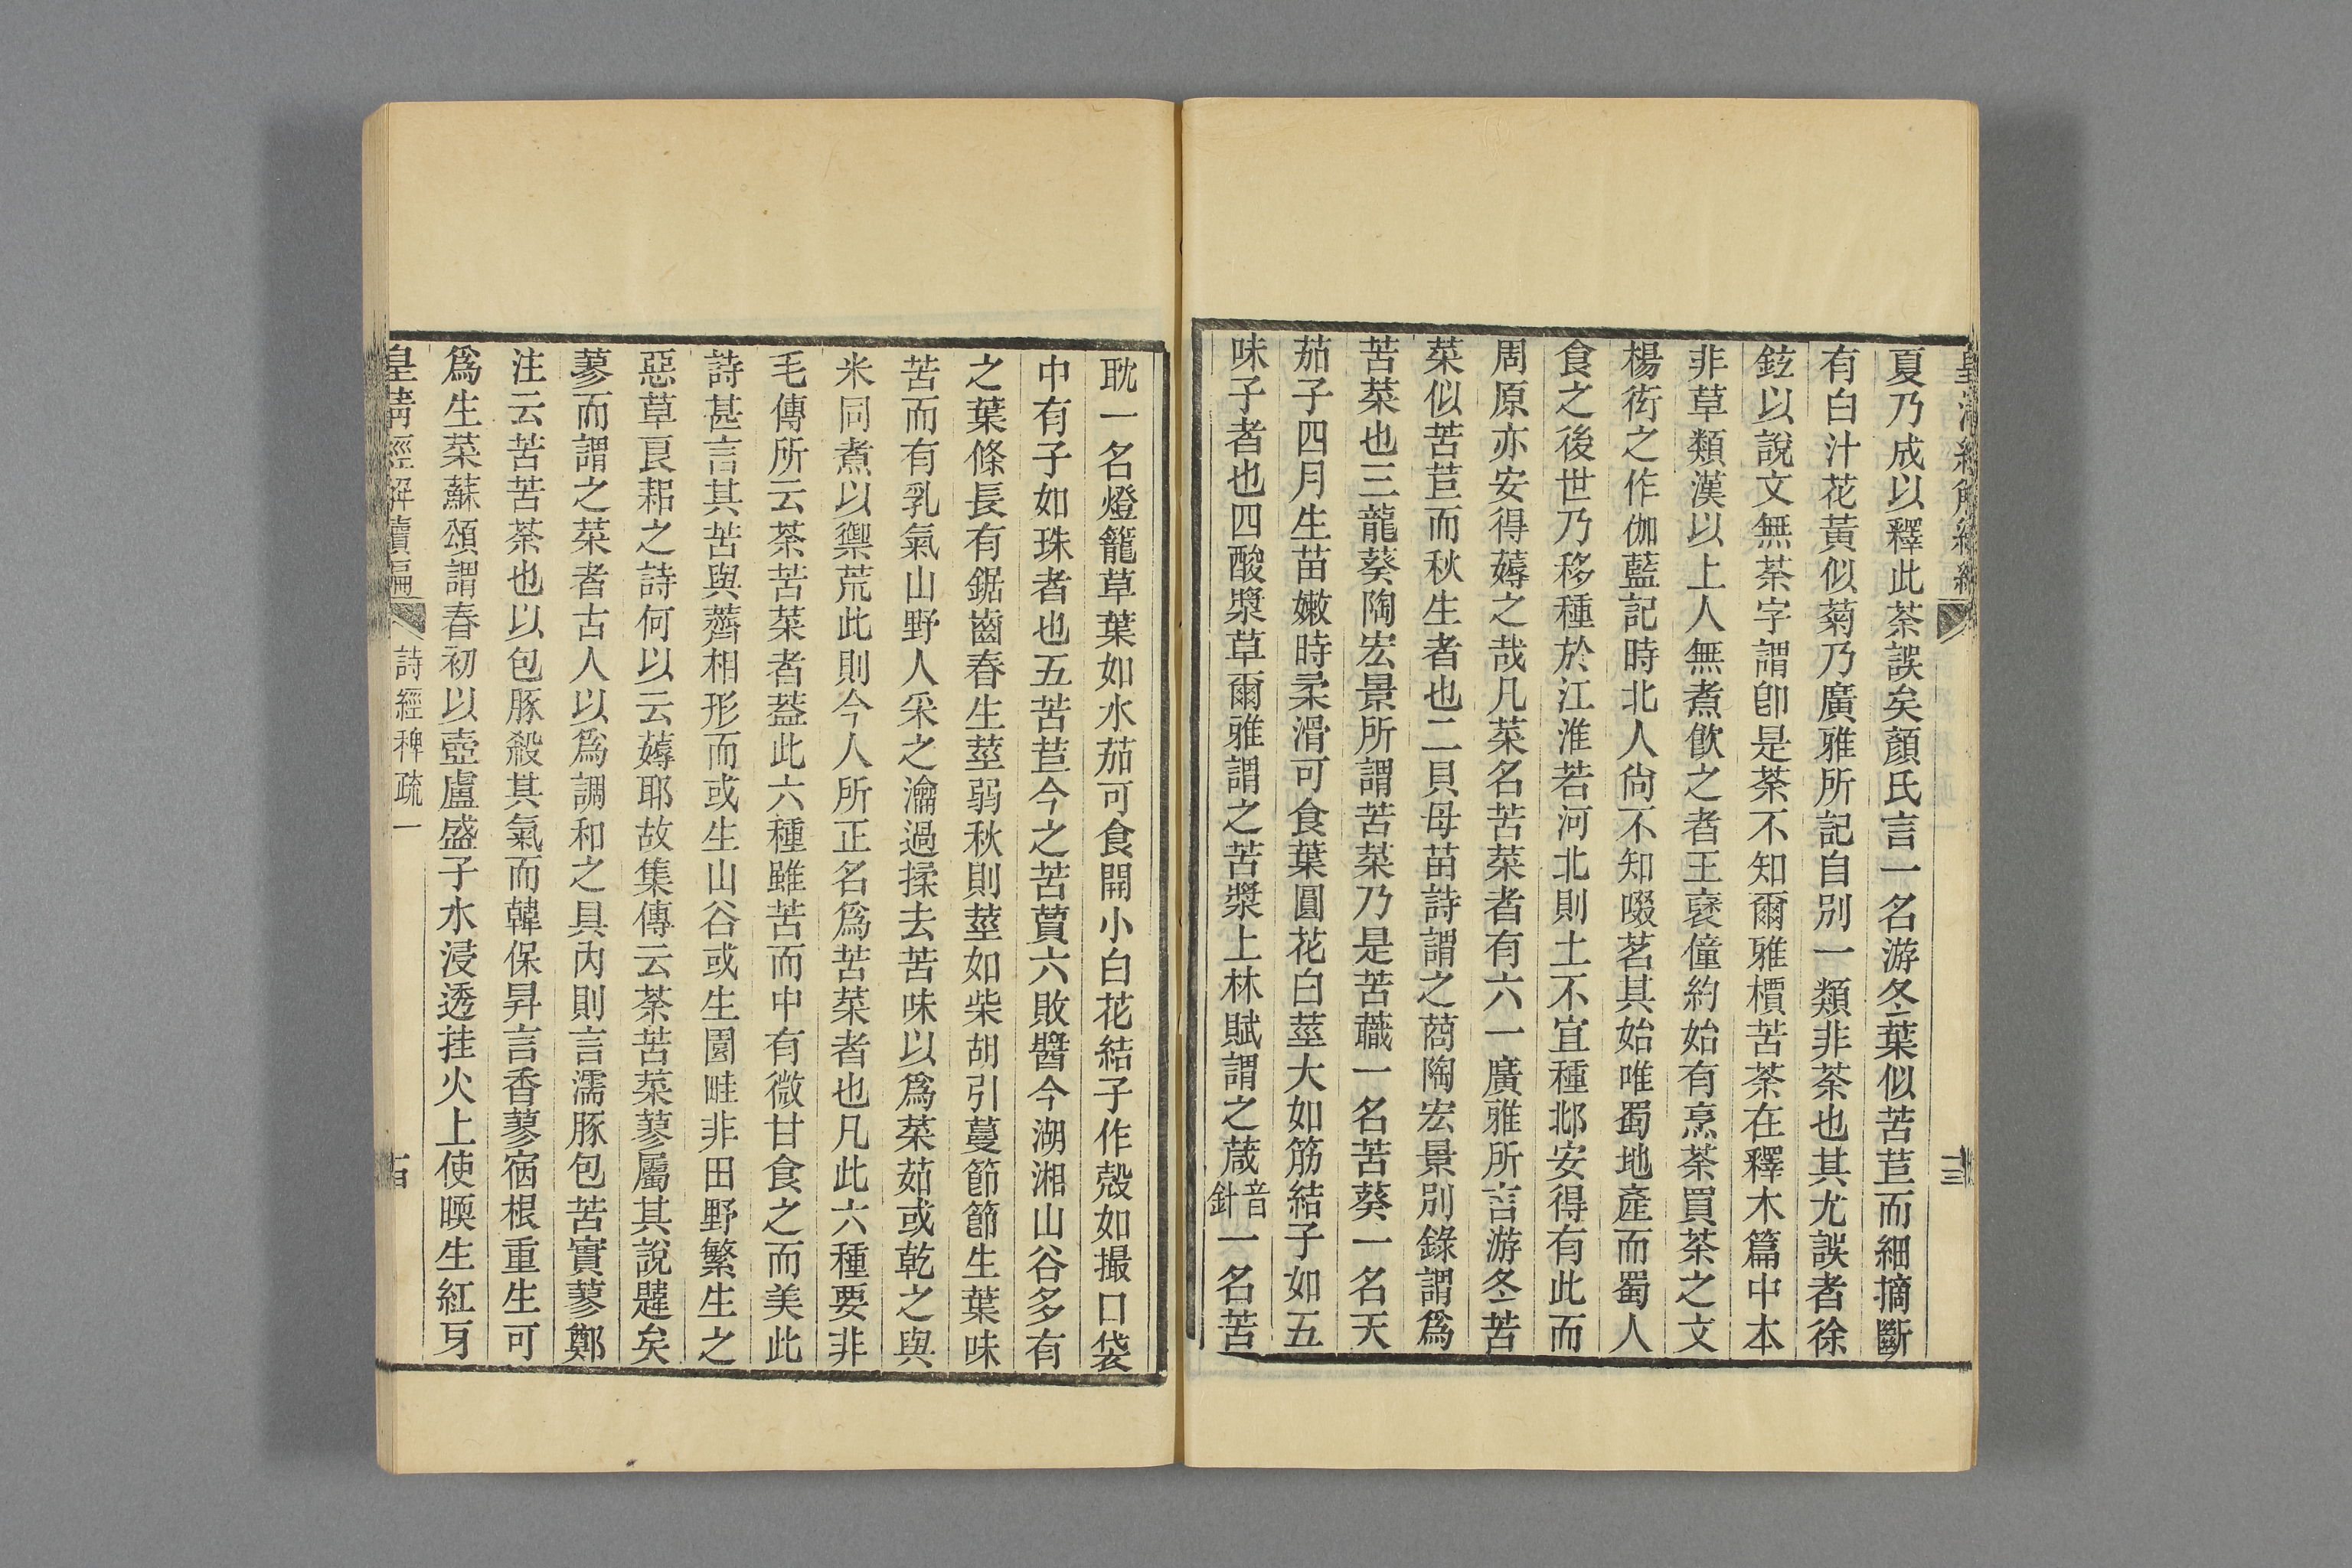 夏乃成以釋此荼誤矣顏氏言一名游冬葉似苦苣而細摘斷
有白汁花黃似菊乃廣雅所記自別一類非荼也其尤誤者徐
鉉以說文無茶字謂卽是荼不知爾雅檟苦荼在釋木篇中本
非草類漢以上人無煮飮之者王襃僮約始有烹茶買茶之文
楊衒之作伽藍記時北人尙不知啜茗其始唯蜀地產而蜀人
食之後世乃移種於江淮若河北則土不宜種邶安得有此而
周原亦安得薅之哉凡菜名苦菜者有六一廣雅所言游冬苦
菜似苦苣而秋生者也二貝母苗詩謂之莔陶宏景別錄謂爲
苦菜也三龍葵陶宏景所謂苦菜乃是苦蘵一名苦葵一名天
茄子四月生苗嫩時柔滑可食葉圓花白莖大如筋結子如五
味子者也四酸漿草爾雅謂之苦漿上林賦謂之葴音針一名苦
耽一名燈籠草葉如水茄可食開小白花結子作殼如撮口袋
中有子如珠者也五苦苣今之苦蕒六敗醬今湖湘山谷多有
之葉條長有鋸齒春生莖弱秋則莖如柴胡引蔓節節生葉味
苦而有乳氣山野人采之瀹過揉去苦味以爲菜茹或乾之與
米同煮以禦荒此則今人所正名爲苦菜者也凡此六種要非
毛傳所云荼苦菜者葢此六種雖苦而中有微甘食之而美此
詩甚言其苦與薺相形而或生山谷或生園畦非田野繁生之
惡草良耜之詩何以云薅耶故集傳云荼苦菜蓼屬其說韙矣
蓼而謂之菜者古人以爲調和之具內則言濡豚包苦實蓼鄭
注云苦苦荼也以包豚殺其氣而韓保昇言香蓼宿根重生可
爲生菜蘇頌謂春初以壺盧盛子水浸透挂火上使暖生紅芽
皇淸經解續編
詩經稗疏一